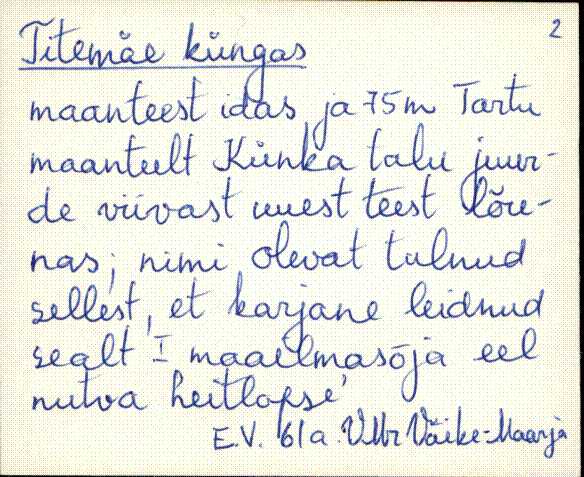 2
Titemäe küngas
maanteest idas ja 75m Tartu
maanteelt Künka talu juur-
de viivast uuest teest lõu-
nas; nimi olevat tulnud
sellest, et karjane leidnud
sealt I maailmasõja eel
nutva heitlapse
E.V. 61a. VMr Väike-Maarja